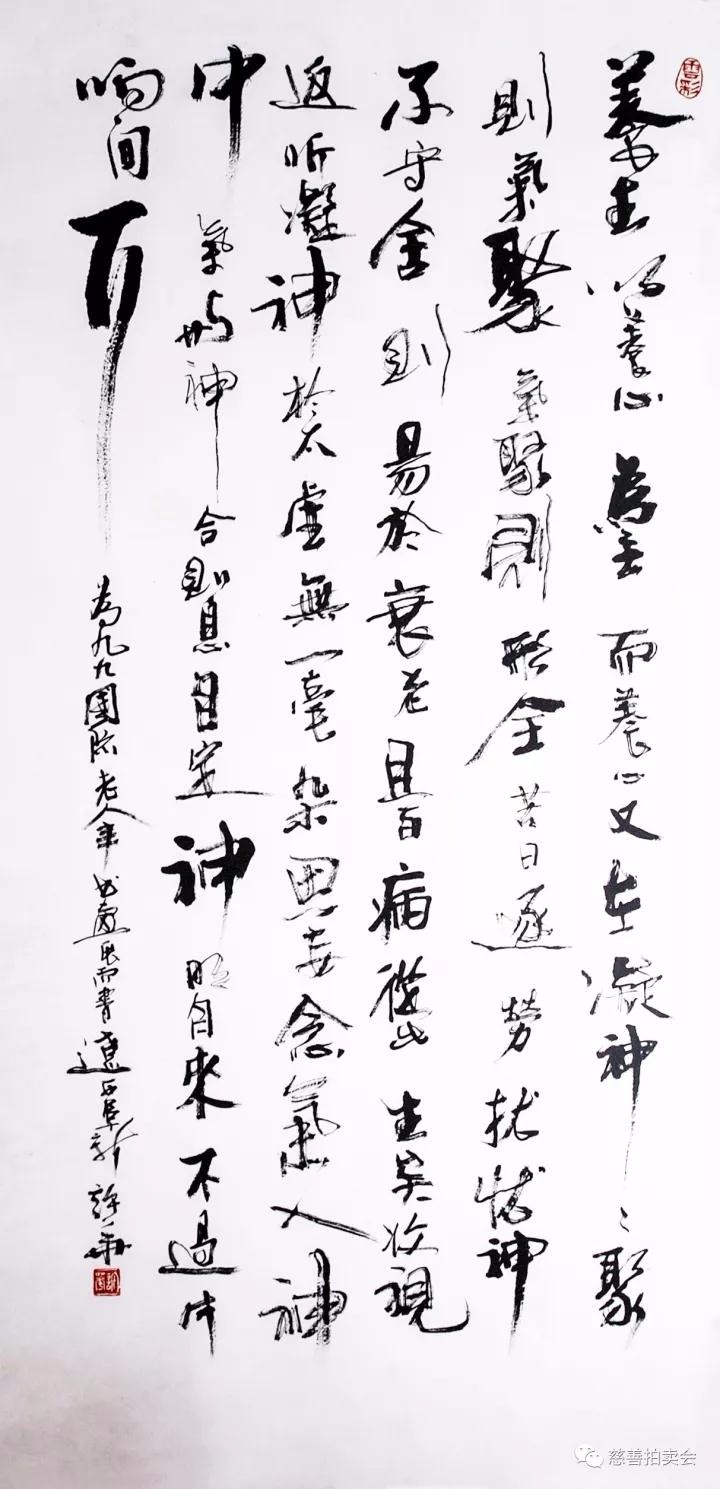 養生以養心為主而養心又在凝神神聚
則氣聚氣聚則形全若日逐勞擾憂神
不守舍則易於衰老且百病從此生矣收視
返听凝神於太虛無一毫杂思妄念氣入神
中氣與神合則息自定神明自來不過片
晌间耳
為九九國际老人年 而書遼 阜新許
香彩
慈善拍卖会